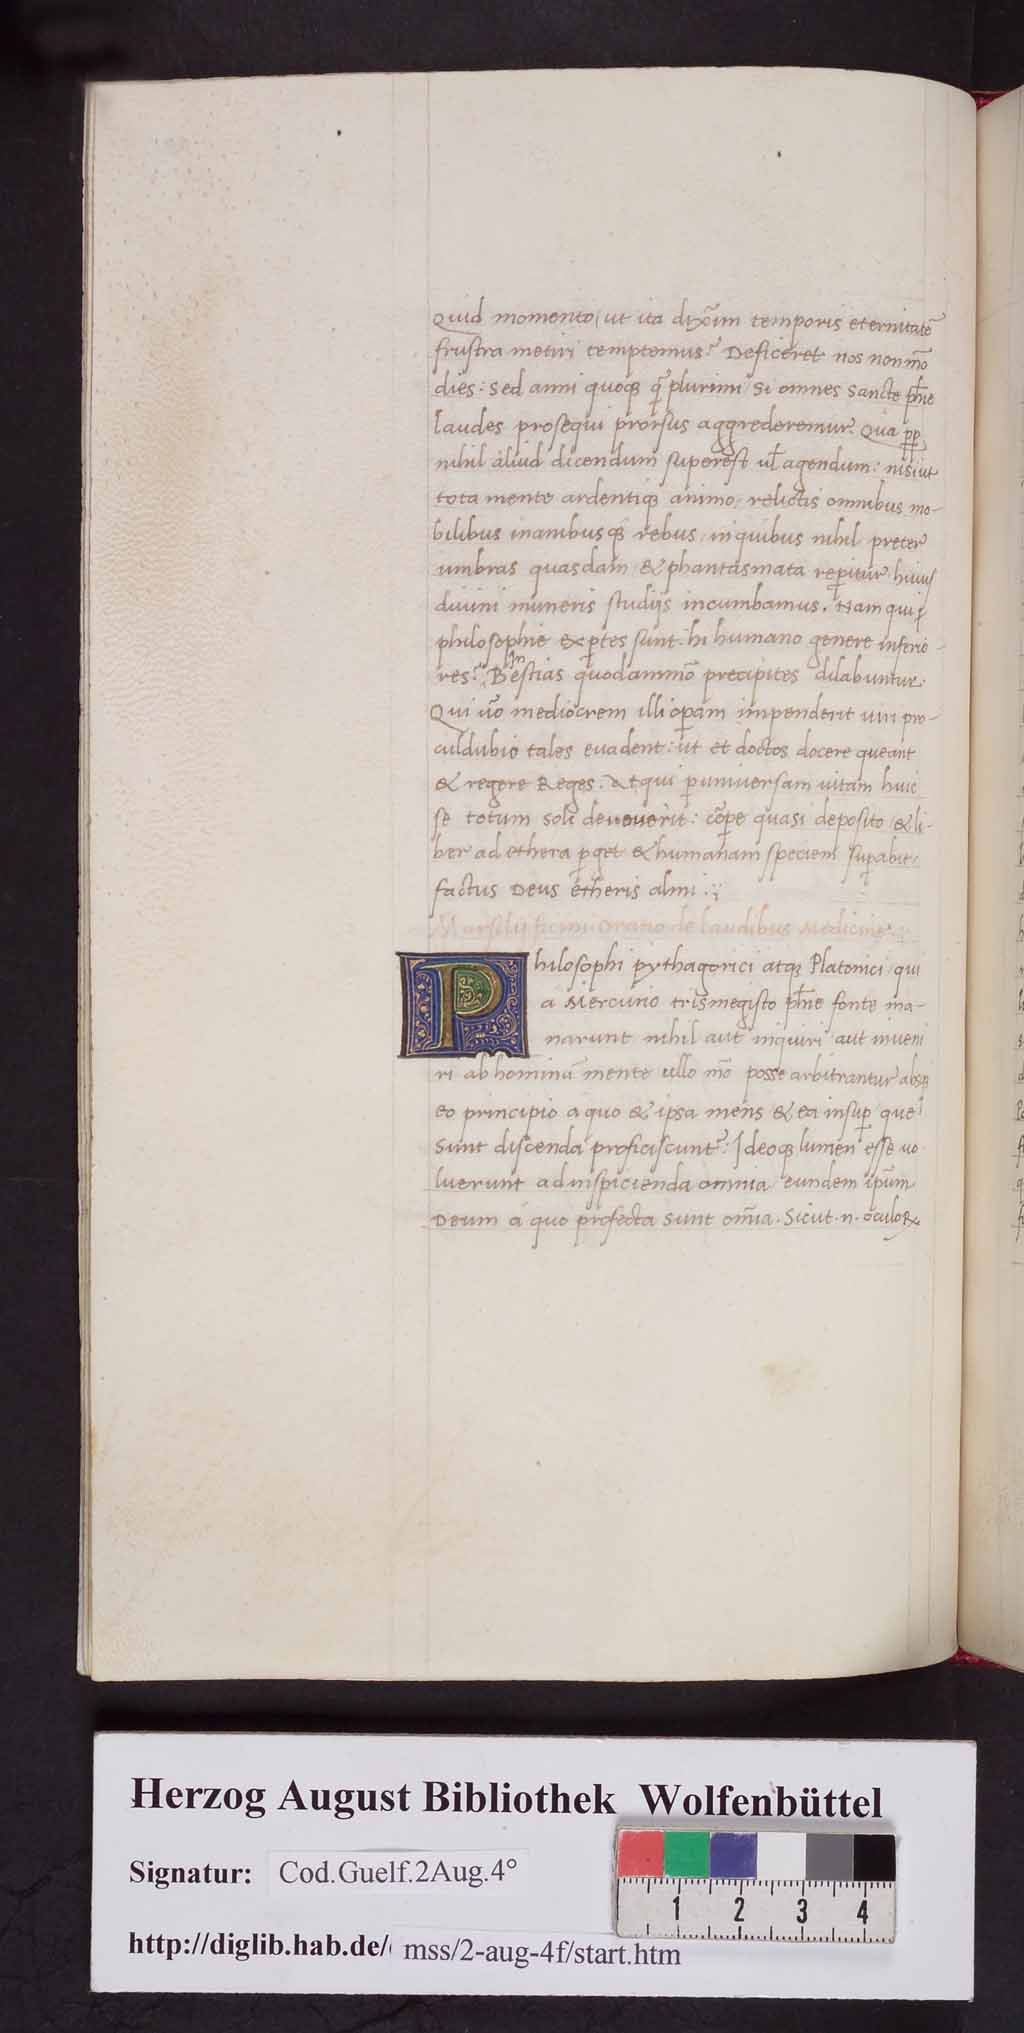 Quid momento / ut ita dixĩm temporis eternitatẽ
frustra metiri temptemus? Deficeret nos non mõ
dies: sed anni quoqꝫ q̃ plurimi / si omnes sancte ph̃ie
laudes prosequi prorsus aggrederemur. Qua pp̱
nihil aliud dicendum superest ul̃ agendum: nisi ut
tota mente ardentiqꝫ animo / relictis omnibus mo-
bilibus inanibusqꝫ rebus / in quibus nihil preter
umbras quasdam & phantasmata rep̱itur huius
diuini muneris studijs incumbamus. Nam qui
philosophie exp̱tes sunt: hi humano genere inferio-
res: In Bestias quodammõ precipites dilabuntur.
Qui ũo mediocrem illi op̱am impenderit uiri pro-
culdubio tales euadent: ut et doctos docere queant
& regere Reges. At qui p̱ uniuersam uitam huic
se totum soli deuouerit: corp̱e quasi deposito / & li-
ber ad ethera p̱get & humanam speciem sup̱abit /
factus Deus etheris almi :
Marsilij ficini oratio de laudibus Medicine.
Philosophi pythagorici atqꝫ Platonici / qui
a Mercurio trismegisto ph̃ie fonte ma-
narunt nihil aut inquiri aut inueni
ri ab hominũ mente ullo mõ posse arbitrantur absqꝫ
eo principio a quo & ipsa mens & ea insup̱ que
sunt discenda proficiscunt᷑: Ideoqꝫ lumen esse uo
luerunt ad inspicienda omnia eundem ip̃um
Deum a quo profecta sunt om̃ia. Sicut .n. oculoꝝ
Herzog August Bibliothek Wolfenbüttel
Signatur: Cod.Guelf.2Aug.4°
1 2 3 4
http://diglib.hab.de/ mss/2-aug-4f/start.htm